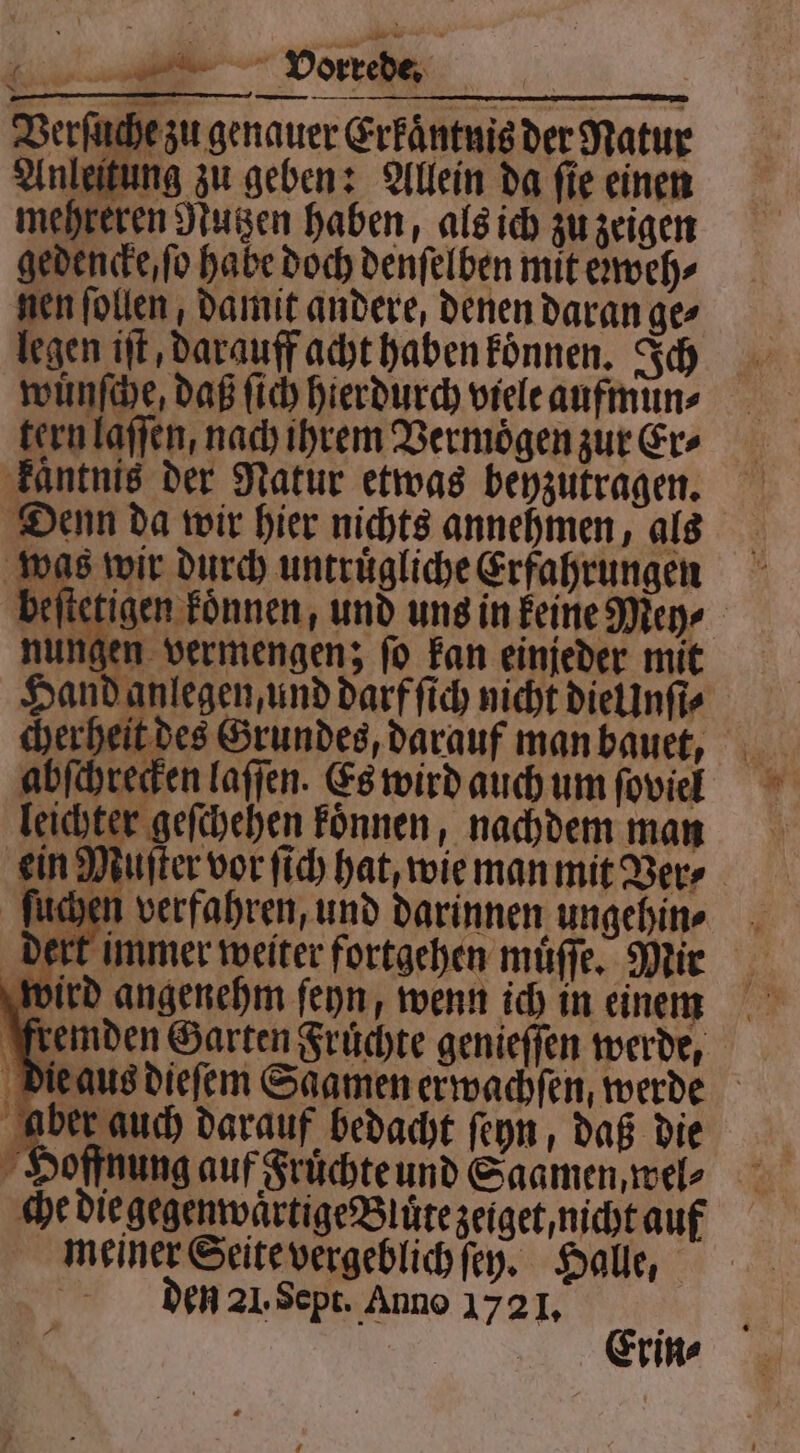 Vorrede.
Verſuche zu genauer Erkåntnis der Natur
Anleitung zu geben: Allein da ſie einen
mehreren Nutzen haben, als ich zu zeigen
gedencke, ſo habe doch denſelben mit erweh⸗
nen ſollen, damit andere, denen daran ge⸗
legen iſt, darauff acht haben koͤnnen. Ich
wuͤnſche, daß ſich hierdurch viele aufmun⸗
tern laſſen, nach ihrem Vermoͤgen zur Er⸗
kaͤntnis der Natur etwas beyzutragen.
Denn da wir hier nichts annehmen, als
was wir durch untruͤgliche Erfahrungen
beſtetigen koͤnnen, und uns in keine Mey⸗
nungen vermengen; ſo kan einjeder mit
Hand anlegen, und darf ſich nicht die Unſi⸗
cherheit des Grundes, darauf man bauet,
abſchrecken laſſen. Es wird auch um ſoviel
leichter geſchehen koͤnnen, nachdem man
ein Muſter vor ſich hat, wie man mit Ver⸗
ſuchen verfahren, und darinnen ungehin⸗
dert immer weiter fortgehen muͤſſe. Mir
wird angenehm ſeyn, wenn ich in einem
fremden Garten Fruͤchte genieſſen werde,
die aus dieſem Saamen erwachſen, werde
aber auch darauf bedacht ſeyn, daß die
Hoffnung auf Fruͤchte und Saamen, wel⸗
che die gegenwaͤrtige Bluͤte zeiget, nicht auf
meiner Seite vergeblich ſey. Halle,
den 21. Sept. Anno 1721.
Erin⸗